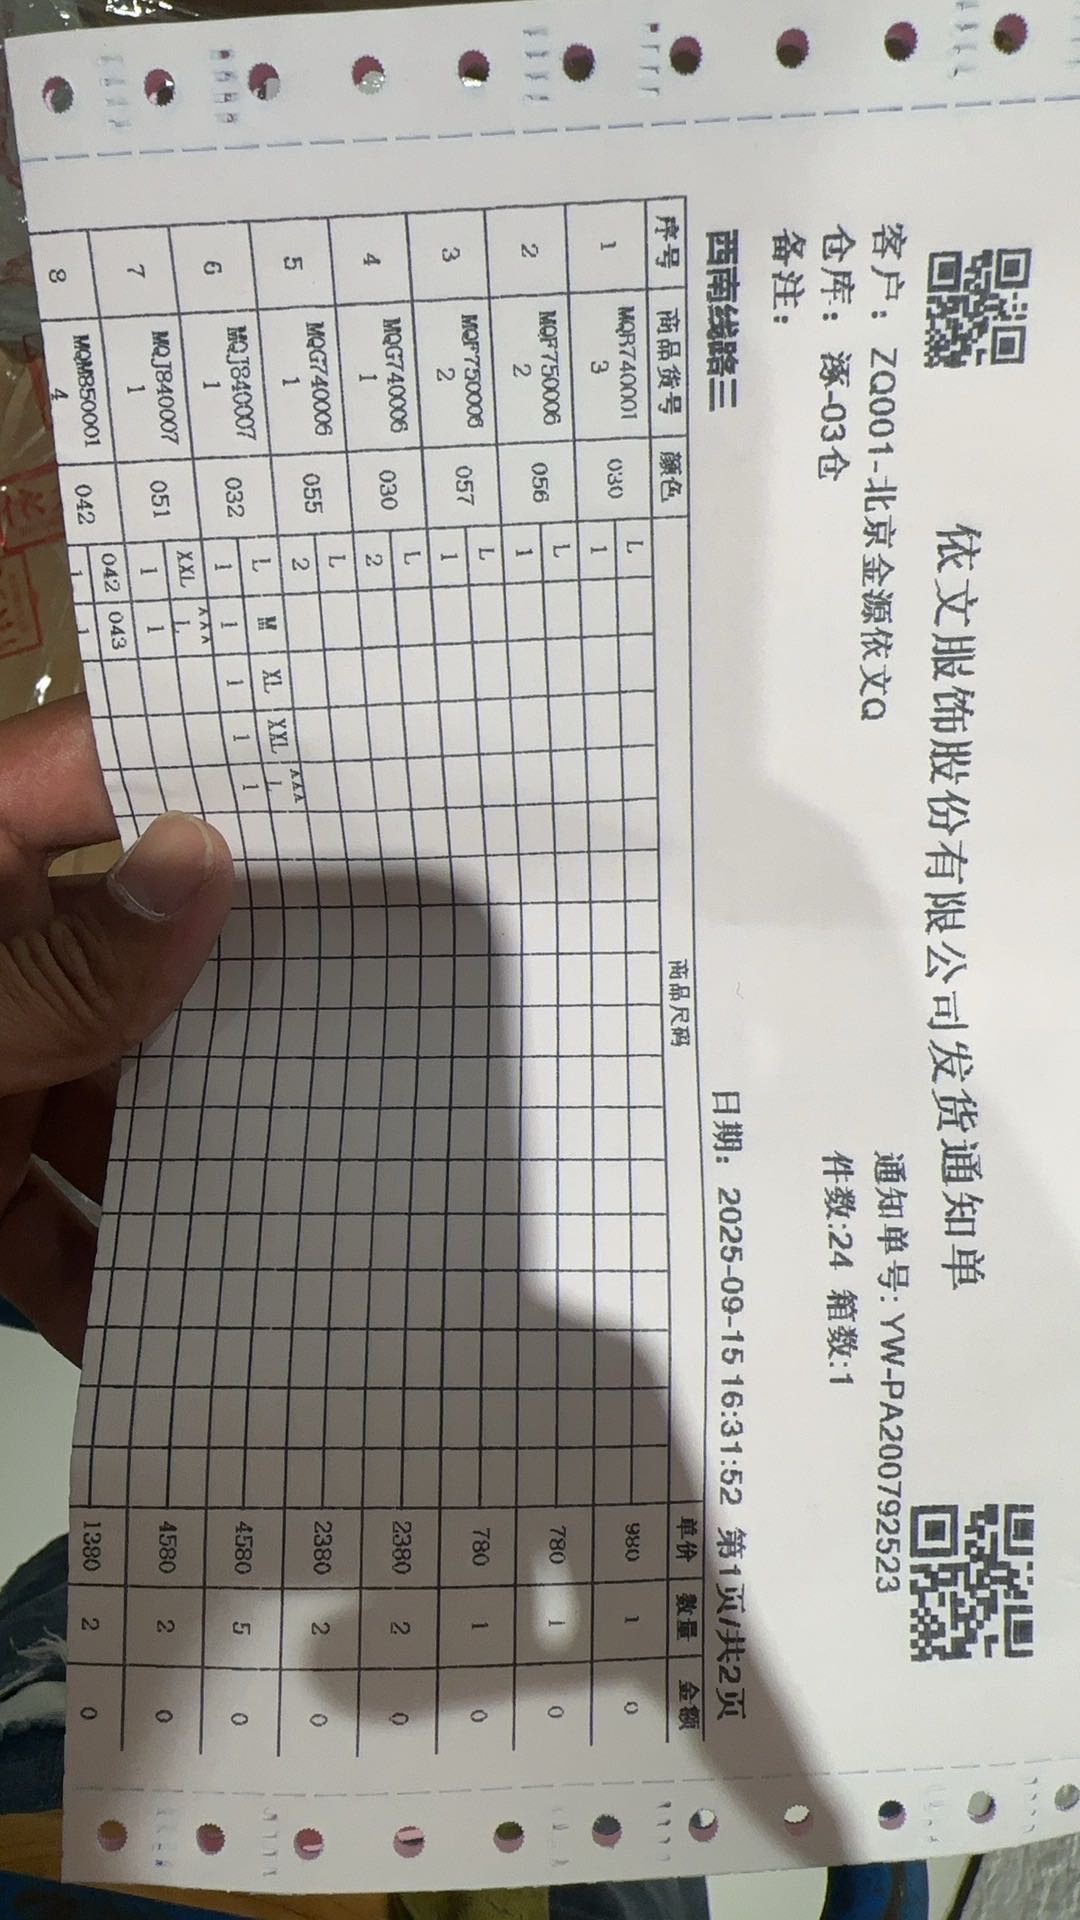 依文服饰股份有限公司发货通知单
客户：ZQ001-北京金源依文Q 通知单号:YW-PA200792523
仓库：涿-03仓 件数:24 箱数:1
备注：
西南线路三 日期：2025-09-15 16:31:52 第1页/共2页
序号 商品货号 颜色 商品尺码 单价 数量 金额
1 MQR7400013 030 L 980 1 0
1
2 MQP7500062 056 L 780 1 0
1
3 MQP7500062 057 L 780 1 0
1
4 MQG7400061 030 L 2380 2 0
2
5 MQG7400061 055 L 2380 2 0
2
6 MQJ8400071 032 L M XL XXL XXXL 4580 5 0
1 1 1 1 1
7 MQJ8400071 051 XXL XXXL 4580 2 0
1 1
8 MQM8500014 042 042 043 1380 2 0
1 1